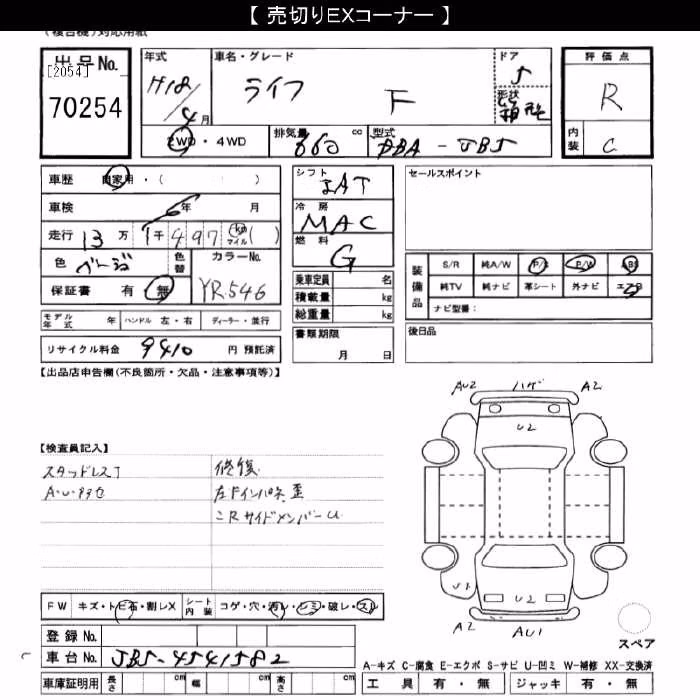 【 売切りEXコーナー 】
(複合機)対応用紙
出品No.
[2054]
70254
年式 H18/4月
車名・グレード ライフ F
ドア 5
形状 箱型
評価点 R
内装 C
2WD・4WD
排気量 660 cc
型式 DBA - JB5
車歴 自家用・( )
車検 年 月
走行 13万 1千 497 km マイル ( )
色 ベージ
色替
カラーNo. YR546
保証書 有 無
モデル年式 年 ハンドル 左・右 ディーラー・並行
リサイクル料金 9410 円 預託済
シフト IAT
冷房 MAC
燃料 G
乗車定員 名
積載量 kg
総重量 kg
書類期限
月 日
セールスポイント
装備品
S/R 純A/W P/S P/W ABS
純TV 純ナビ 革シート 外ナビ エアB
ナビ型番:
後日品
【出品店申告欄(不良箇所・欠品・注意事項等)】
【検査員記入】
スタッドレスT
A・U・タ
修復
左Fインパネ 歪
〃Rサイドメンバー U
AU2 ハゲ A2
U2
U1 U2
A2 AU1
スペア
FW キズ・トビ石・割レX
シート内装 コゲ・穴・汚レ・シミ・破レ・スレ
登録No.
車台No. JB5-4541582
車庫証明用 長さ cm 幅 cm 高さ cm
A-キズ C-腐食 E-エクボ S-サビ U-凹ミ W-補修 XX-交換済
工具 有・無 ジャッキ 有・無